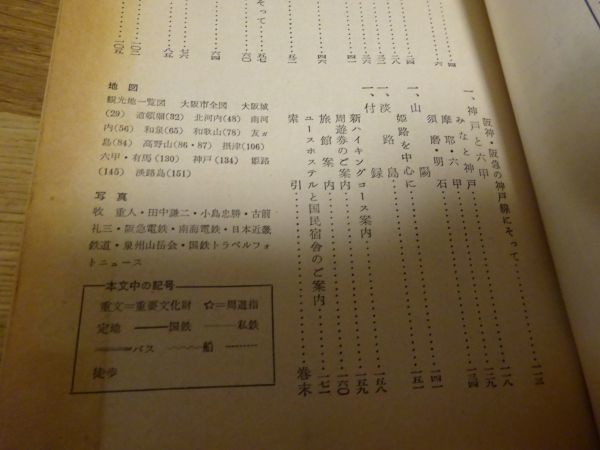 一、神戸と六甲
阪神・阪急の神戸線にそって……一一三
みなと神戸……一一八
摩耶・六甲……一二九
須磨・明石……一三四
一、山陽
姫路を中心に……一四一
一、淡路島……一五一
一、付録
新ハイキングコース案内……一五八
周遊券のご案内……一五九
旅館案内……一六〇
ユースホステルと国民宿舎のご案内……一七一
索引……巻末
そって……五七
六〇
六四
七六
八五
一〇二
一〇五
地図
観光地一覧図 大阪市全図 大阪城
(29) 道頓堀(32) 北河内(48) 南河
内(56) 和泉(65) 和歌山(78) 友ガ
島(84) 高野山(86・87) 摂津(106)
六甲・有馬(130) 神戸(134) 姫路
(145) 淡路島(151)
写真
牧 重人・田中謙二・小島忠勝・古前
礼三・阪急電鉄・南海電鉄・日本近畿
鉄道・泉州山岳会・国鉄トラベルフォ
トニュース
本文中の記号
重文=重要文化財 ☆=周遊指
定地 国鉄 私鉄
バス 船
徒歩